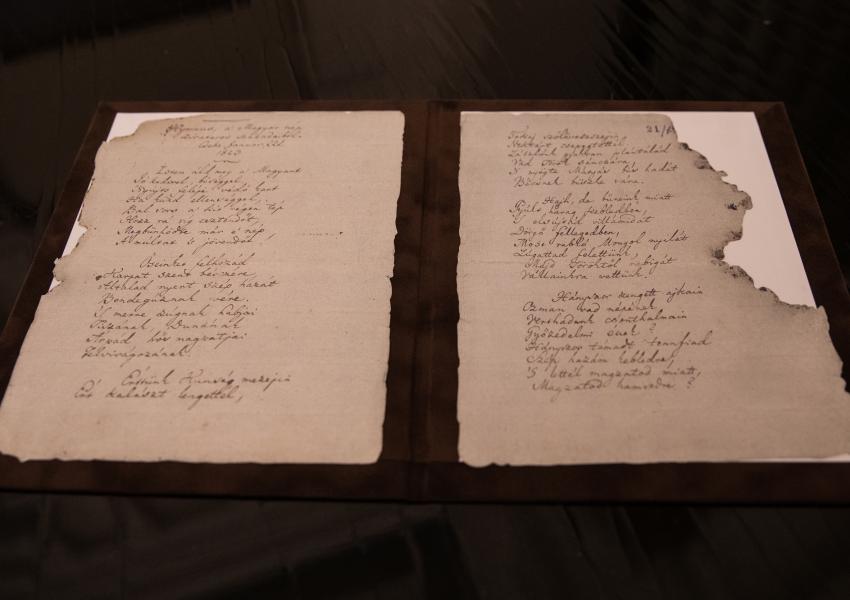 Hymnus, a' Magyar nép
zivataros századaiból.
Cseke, Januar. 22d
1823.
Isten áldd meg a' Magyart
Jó kedvvel, bőséggel,
Nyújts feléje védő kart
Ha küzd ellenséggel;
Bal sors a' kit régen tép
Hozz rá víg esztendőt,
Megbűnhödte már e' nép
A' multat 's jövendőt.
Őseinket felhozád
Kárpát szent bérczére,
Általad nyert szép hazát
Bendegúznak vére.
'S merre zúgnak habjai
Tiszának, Dunának
Árpád hős magzatjai
Felvirágozának.
Értünk Kunság mezején
Ért kalászt lengettél,
21/a
Tokaj szőlővesszein
Nektárt csepegtettél.
Zászlónk gyakran plántálád
Vad Török sánczára,
'S nyögte Mátyás bús hadát
Bécsnek büszke vára.
Hajh, de bűneink miatt
Gyúlt harag kebledben,
'S elsújtád villámidat
Dörgő fellegedben,
Most rabló Mongol nyilát
Zúgattad felettünk,
Majd Töröktől rabigát
Vállainkra vettünk.
Hányszor zengett ajkain
Ozman vad népének
Vert hadunk csonthalmain
Győzedelmi ének?
Hányszor támadt tennfiad
Szép hazám kebledre,
'S lettél magzatod miatt,
Magzatod hamvedre?